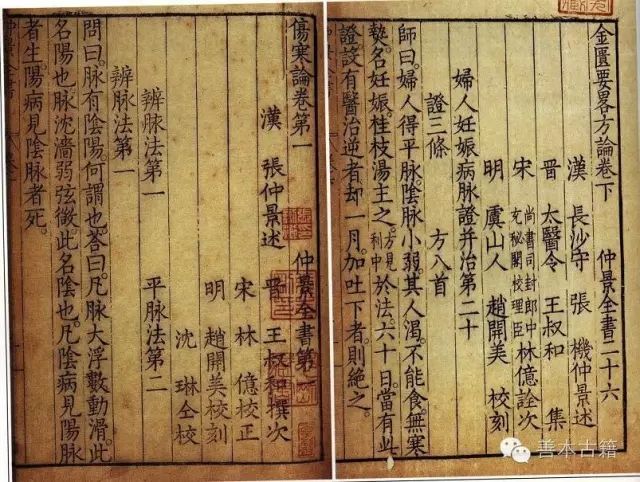 金匱要畧方論卷下　仲景全書二十六
漢　長沙守　張　機仲景述
晉　太醫令　王叔和　集
宋　尚書司封郎中充秘閣校理臣　林億詮次
明　虞山人　趙開美　校刻
婦人妊娠病脉證并治第二十
證三條　方八首
師曰。婦人得平脉。陰脉小弱。其人渴。不能食。無寒
熱。名妊娠。桂枝湯主之。方見利中於法六十日當有此
證。設有醫治逆者。却一月加吐下者。則絶之。
傷寒論卷第一　仲景全書第一
漢　張仲景述　晉　王叔和撰次
宋　林　億校正
明　趙開美校刻
沈　琳仝校
辨脉法第一　平脉法第二
辨脉法第一
問曰。脉有陰陽。何謂也。荅曰。凡脉大浮數動滑。此
名陽也。脉沈濇弱弦微。此名陰也。凡陰病見陽脉
者生。陽病見陰脉者死。
善本古籍